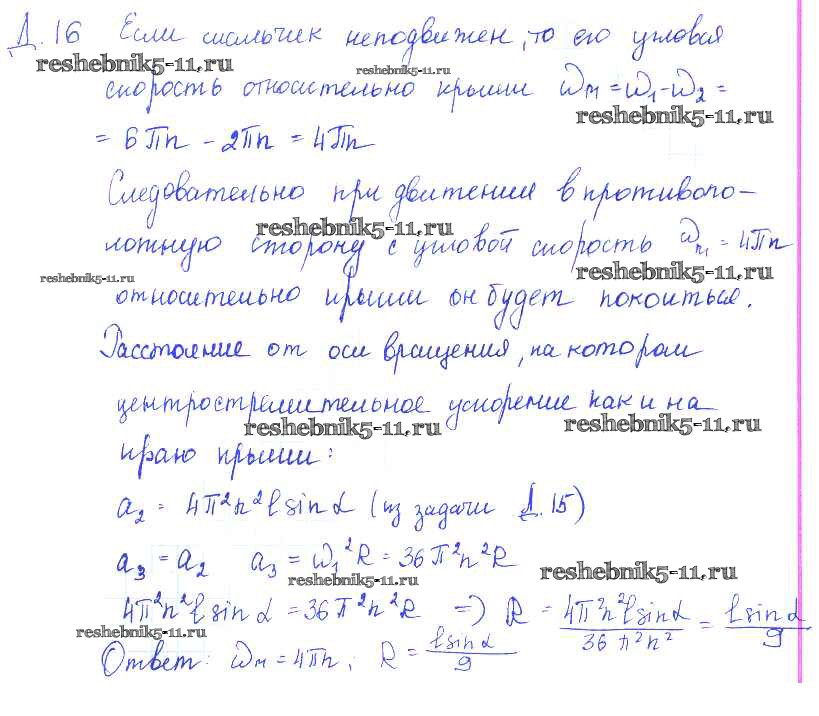 Д.16 Если мальчик неподвижен, то его угловая
reshebnik5-11.ru reshebnik5-11.ru
скорость относительно крыши ωм = ω1 - ω2 =
reshebnik5-11.ru
= 6πn - 2πn = 4πn
Следовательно при движении в противопо-
reshebnik5-11.ru
ложную сторону с угловой скорость ωп1 = 4πn
reshebnik5-11.ru reshebnik5-11.ru
относительно крыши он будет покоиться.
Расстояние от оси вращения, на котором
центростремительное ускорение как и на
reshebnik5-11.ru reshebnik5-11.ru
краю крыши:
a₂ = 4π²n²ℓsinα (из задачи Д.15)
a₃ = a₂ a₃ = ω₁²R = 36π²n²R
reshebnik5-11.ru reshebnik5-11.ru
4π²n²ℓsinα = 36π²n²R => R = 4π²n²ℓsinα / 36π²n² = ℓsinα / 9
reshebnik5-11.ru
Ответ: ωм = 4πn; R = ℓsinα / 9